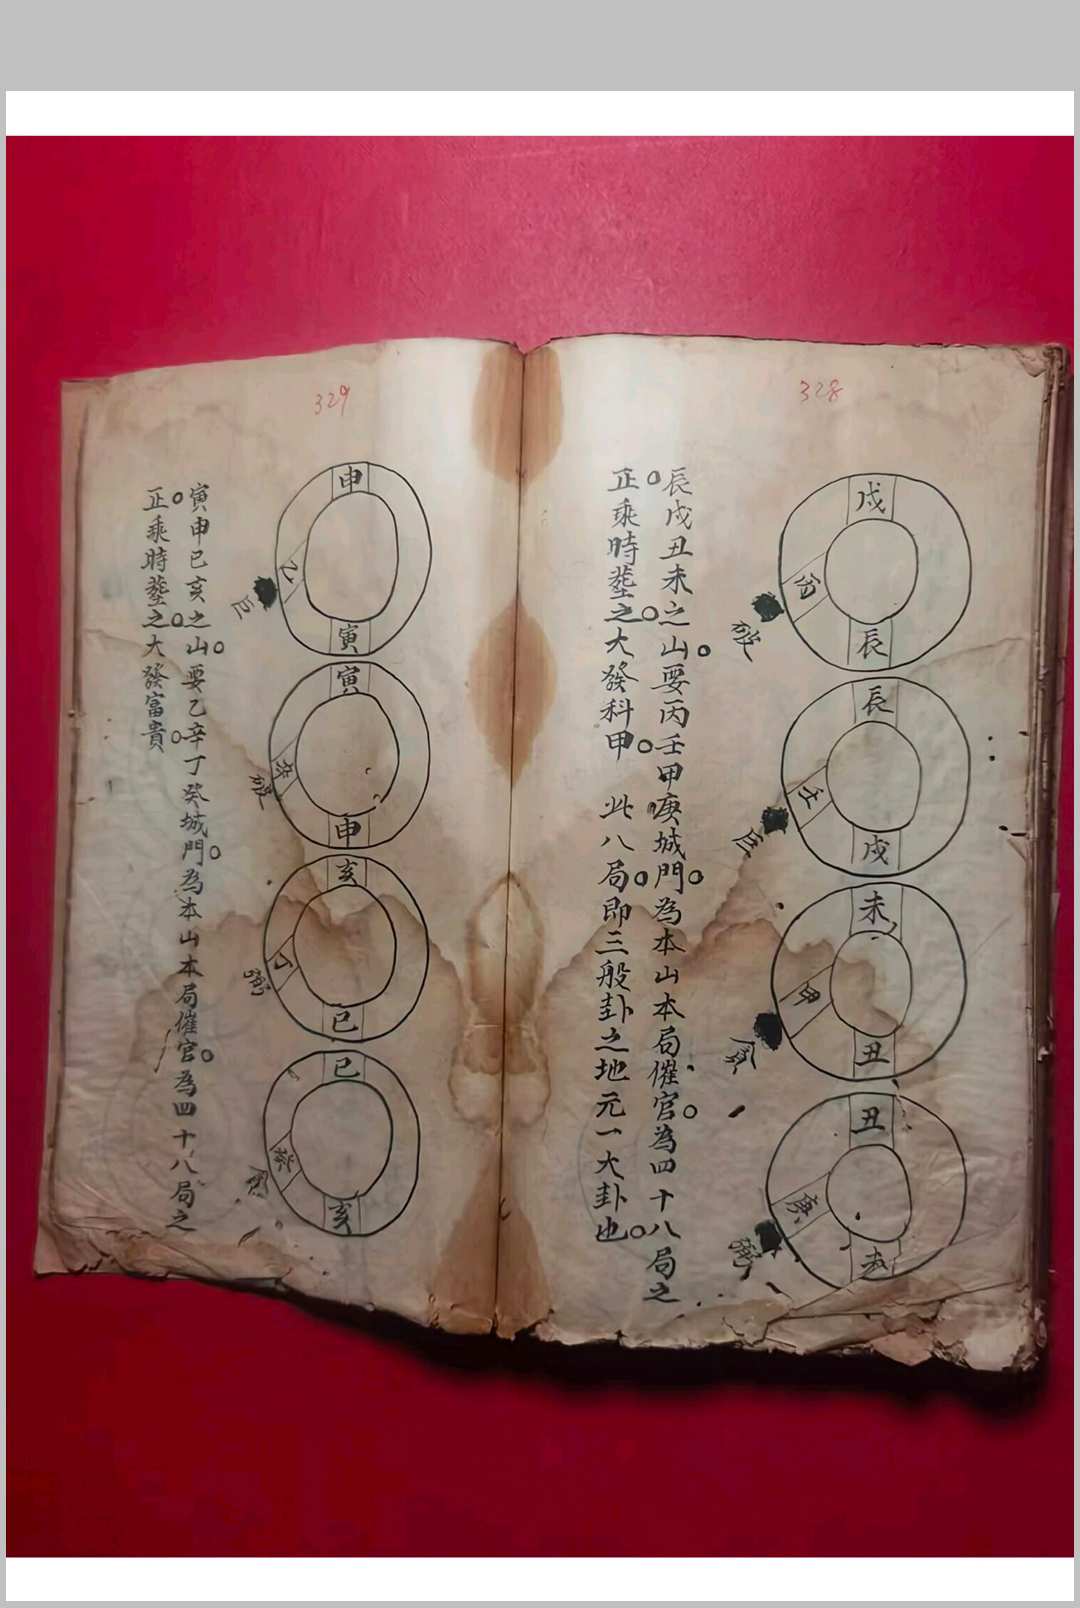 328
戌
辰
辰
壬
戌
巨
未
甲
丑
丑
庚
未
辰戌丑未之山要丙壬甲庚城門為本山本局催官為四十八局之
正乘時塟之大發科甲 此八局即三般卦之地元一大卦也
329
申
乙
巨
寅
寅
癸
申
亥
丁
巳
巳
亥
寅申巳亥之山要乙辛丁癸城門為本山本局催官為四十八局之
正乘時塟之大發富貴